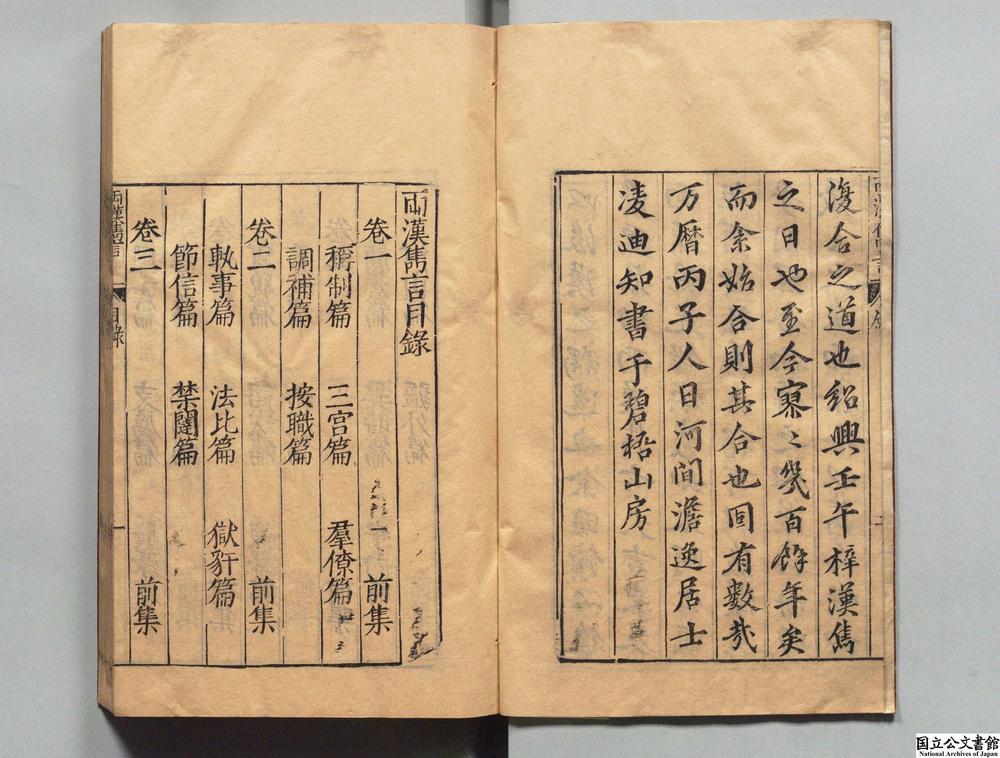 復合之道也紹興壬午梓漢雋
之日也至今寥〻幾百餘年矣
而余始合則其合也回有數哉
万曆丙子人日河間澹逸居士
凌迪知書于碧梧山房
兩漢雋言目錄
卷一 前集
稱制篇 三宫篇 羣僚篇
調補篇 按職篇
卷二 前集
執事篇 法比篇 獄豻篇
節信篇 禁闥篇
卷三 前集
兩漢雋言 目錄 一
国立公文書館
National Archives of Japan